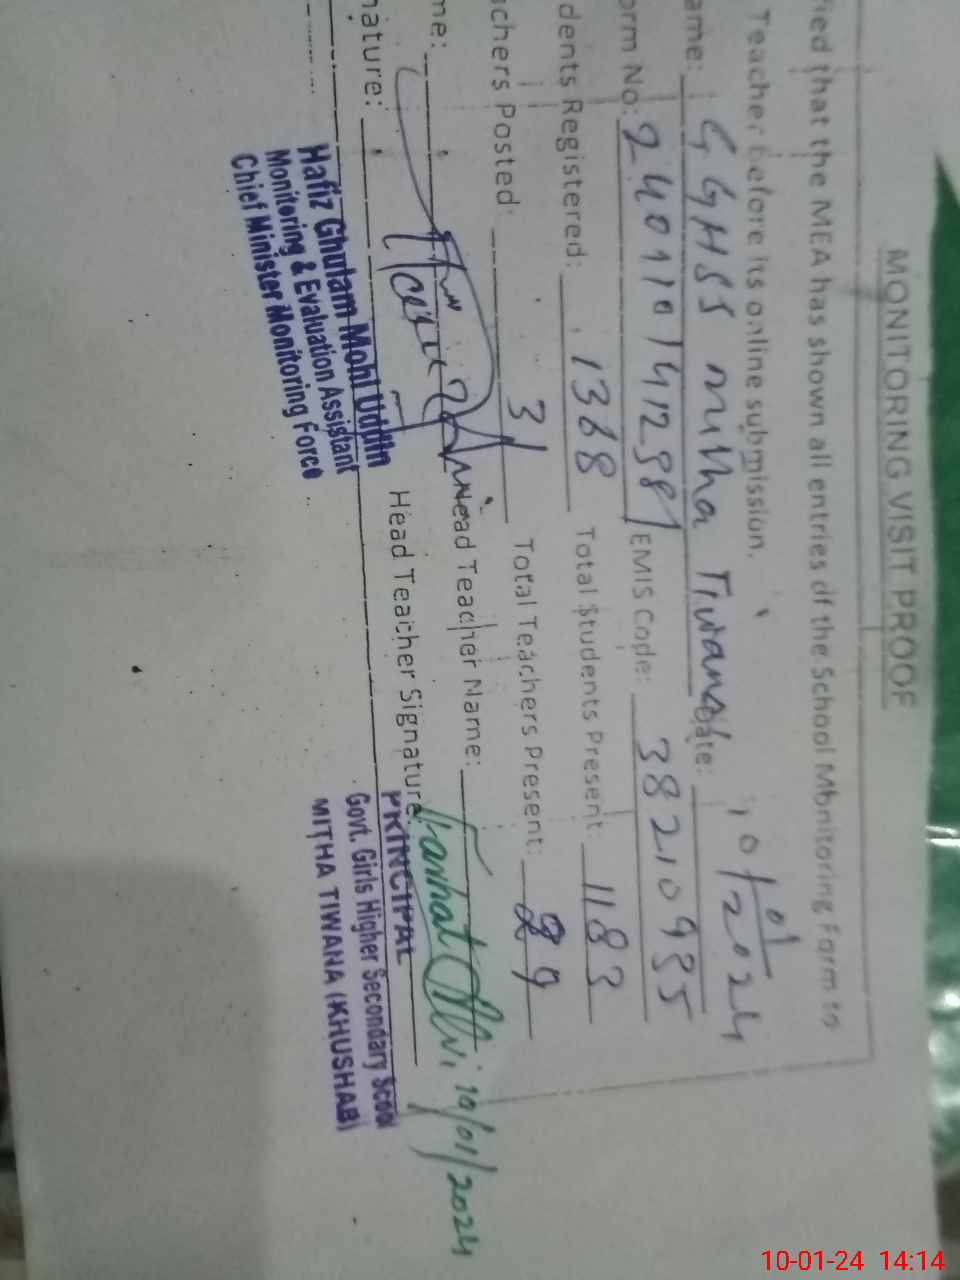 MONITORING VISIT PROOF
fied that the MEA has shown all entries of the School Monitoring Form to
Teacher before its online submission.
ame: GGHSS Mitha Tiwana Date: 10/01/2024
orm No: EMIS Code: 38210985
dents Registered: 1368 Total Students Present: 1183
achers Posted: 31 Total Teachers Present: 29
me: Head Teacher Name: Farhat Alvi 10/01/2024
nature: Head Teacher Signature:
Hafiz Ghulam Mohi Uddin
Monitoring & Evaluation Assistant
Chief Minister Monitoring Force
PRINCIPAL
Govt. Girls Higher Secondary Scool
MITHA TIWANA (KHUSHAB)
10-01-24 14:14